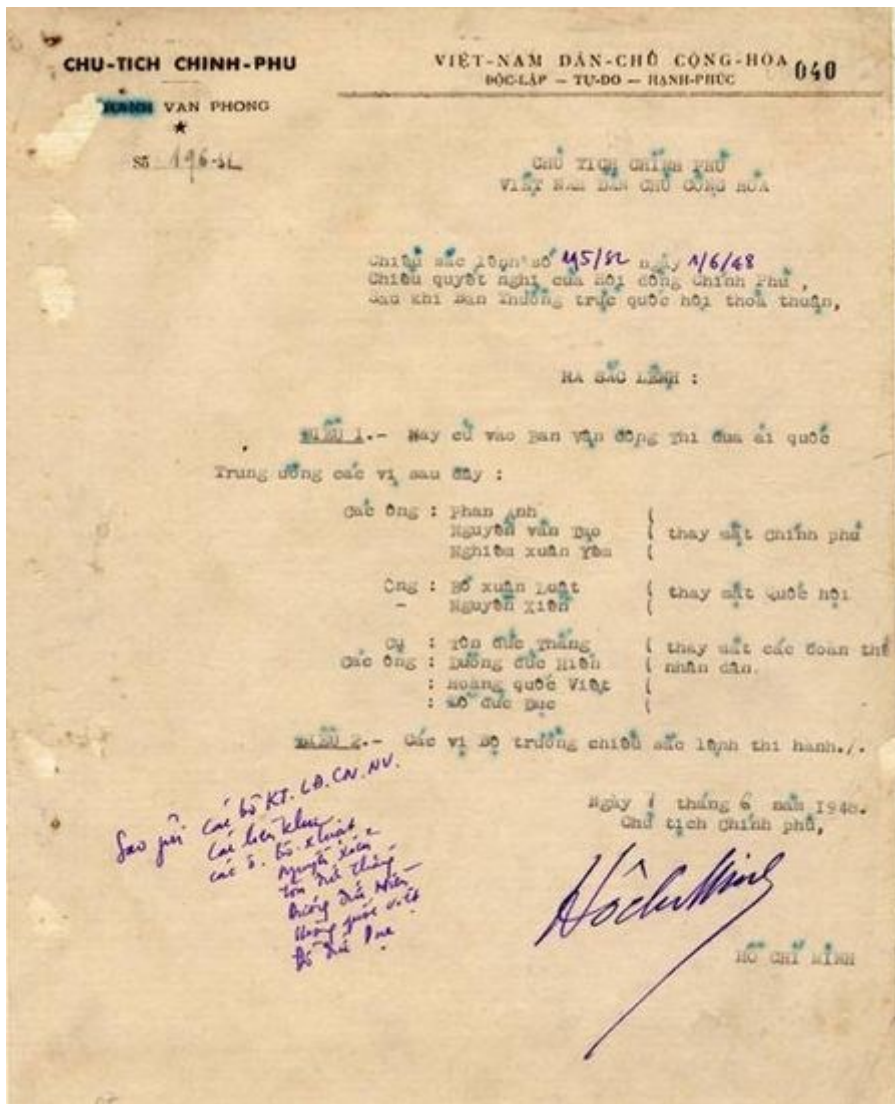 CHU-TICH CHINH-PHU
VAN PHONG
Số 196-SL
VIỆT-NAM DÂN-CHỦ CỘNG-HÒA
ĐỘC-LẬP — TỰ-DO — HẠNH-PHÚC
040
CHỦ TỊCH CHÍNH PHỦ
VIỆT NAM DÂN CHỦ CỘNG HÒA
Chiếu sắc lệnh số 195/SL ngày 1/6/48
Chiếu quyết nghị của Hội đồng Chính Phủ,
Sau khi Ban Thường trực quốc hội thoả thuận,
RA SẮC LỆNH :
ĐIỀU 1.- Nay cử vào Ban Vận động Thi đua ái quốc
Trung ương các vị sau đây :
Các Ông : Phan Anh
Nguyễn văn Tạo ( thay mặt Chính phủ
Nghiêm xuân Yêm
Ông : Bồ xuân Luật ( thay mặt Quốc hội
- Nguyễn Xiển
Cụ : Tôn đức Thắng ( thay mặt các đoàn thể
Các Ông : Dương đức Hiền ( nhân dân.
: Hoàng quốc Việt (
: Đỗ đức Dục (
ĐIỀU 2.- Các vị Bộ trưởng chiếu sắc lệnh thi hành./.
Ngày 1 tháng 6 năm 1948.
Chủ tịch Chính phủ,
Hồ Chí Minh
HỒ CHÍ MINH
Sao gửi các bộ KT. LĐ. CN. NV.
Các liên khu
các ô. Bồ x Luật
Nguyễn Xiển
Tôn đức Thắng
Dương đức Hiền
Hoàng quốc Việt
Đỗ đức Dục